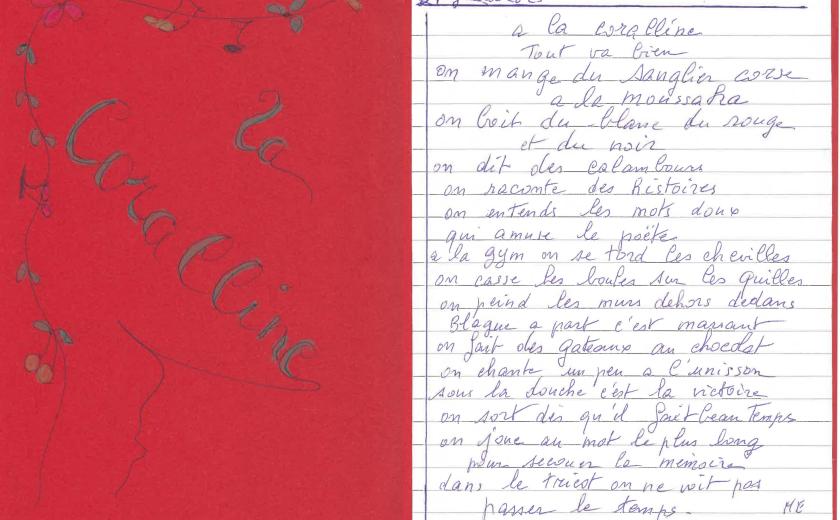 La
Coralline
a la coralline
Tout va bien
on mange du sanglier corse
a la moussaka
on boit du blanc du rouge
et du noir
on dit des calambours
on raconte des histoires
on entends les mots doux
qui amuse le poëte
a la gym on se tord les chevilles
on casse les boules sur les quilles
on peind les murs dehors dedans
Blague a part c'est marrant
on fait des gateaux au chocolat
on chante un peu a l'unisson
sous la douche c'est la victoire
on sort dès qu'il fait beau Temps
on joue au mot le plus long
pour secouer la mémoire
dans le tricot on ne voit pas
passer le temps.
ME